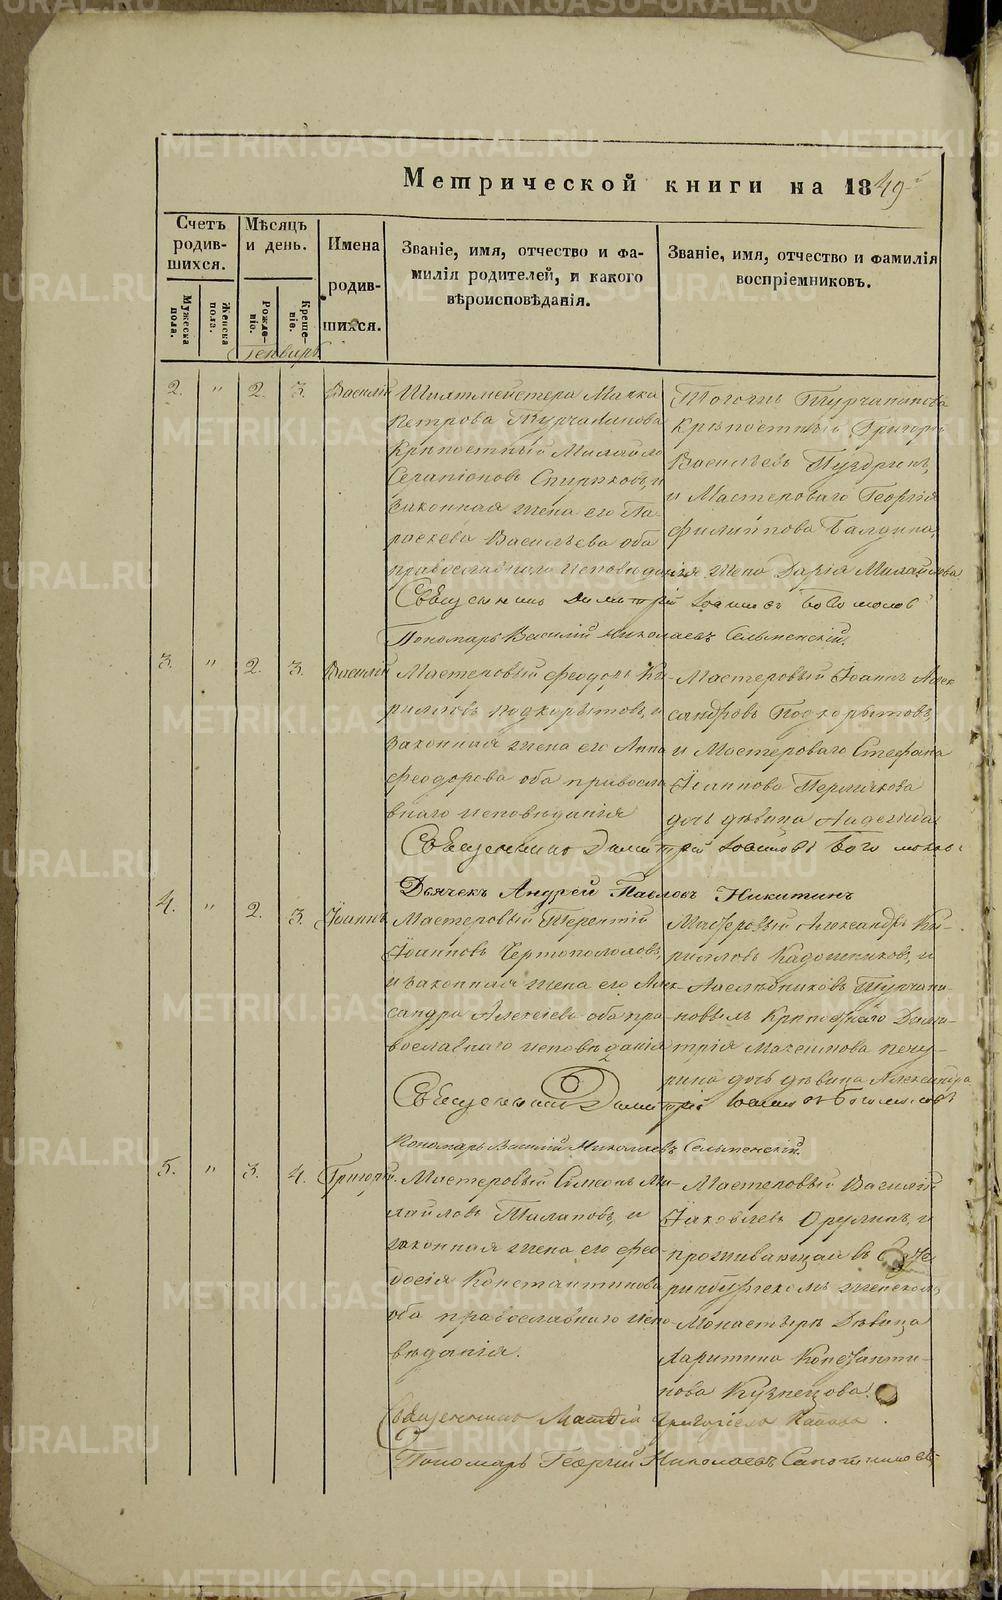 METRIKI.GASO-URAL.RU
Метрической книги на 1849.
Счетъ родив-шихся.
Мѣсяцъ и день.
Имена родив-шихся.
Званіе, имя, отчество и фа-
милія родителей, и какого
вѣроисповѣданія.
Званіе, имя, отчество и фамилія
воспріемниковъ.
Мужеска пола.
Женска пола.
Рожде-ніе.
Креще-ніе.
Генварь
2. " 2. 3. Василій
Шихтмейстера Марка
Петрова Турчанинова
Крѣпостный Михайло
Серапіоновъ Спиряковъ, и
законная жена его Па-
раскева Васильева оба
православнаго исповѣданія
Тогожъ Турчанинова
Крѣпостный Григорій
Васильевъ
и Мастероваго Георгія
Филиппова
жена Дарія Михайлова
Священникъ Димитрій Іоанновъ Богомолов
Пономарь Василій Николаевъ Сельменскій.
3. " 2. 3. Василій
Мастеровый Феодоръ Ки-
риловъ Подкорытовъ, и
законная жена его Анна
Феодорова оба правосла
внаго исповѣданія
Мастеровый Іоаннъ Алек
сандровъ Подкорытовъ,
и Мастероваго Стефана
Іоаннова Пермякова
дочь дѣвица Надежда
Священникъ Димитрій Іоанновъ Богомолов
Дьячекъ Андрей Павловъ Никитинъ
4. " 2. 3. Іоаннъ
Мастеровый Терентій
Іоанновъ Чертополоховъ,
и законная жена его Алек-
сандра Алексіева оба пра-
вославнаго исповѣданія
Мастеровый Александръ Ки-
рилловъ Кадошниковъ, и
Наслѣдниковъ Турчани-
новыхъ Крѣпостнаго Дими-
трія Максимова Печу-
рина дочь дѣвица Александра
Священникъ Димитрій Іоанновъ Богомоловъ
Пономарь Василій Николаевъ Сельменскій.
5. " 3. 4. Григорій.
Мастеровый Симеонъ Ми-
хайловъ Талановъ, и
законная жена его Фео-
досія Константинова
оба православнаго испо-
вѣданія.
Мастеровый Василій
Іаковлевъ Орулинъ, и
проживающая въ Екате
ринбургскомъ женскомъ
Монастырѣ Дѣвица
Харитина Константи-
нова Кузнецова.
Священникъ Матфій Григоріевъ Попов
Пономарь Георгій Николаевъ Сапожниковъ